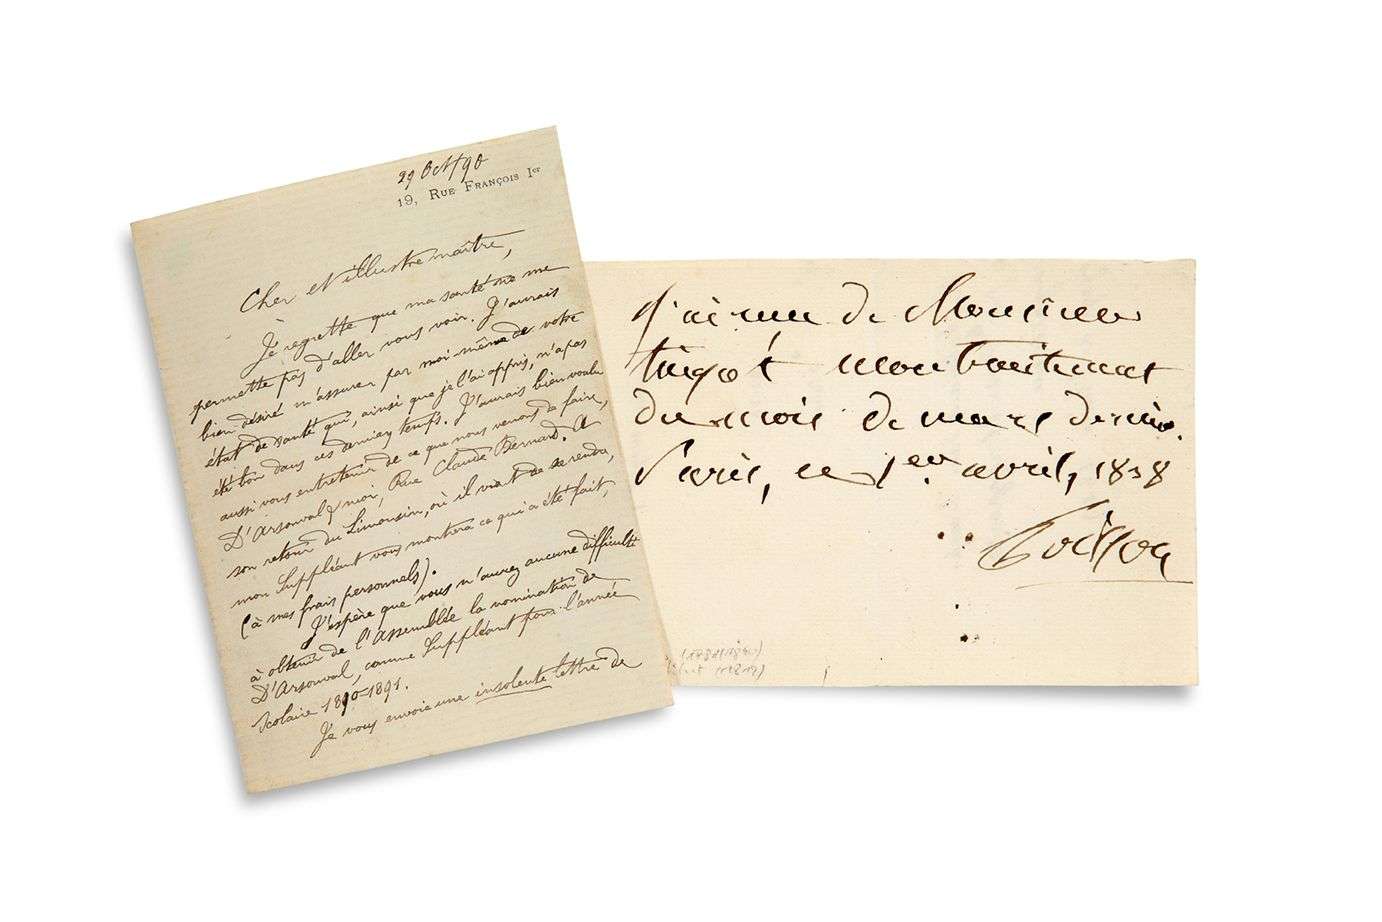 29 Oct 90
19, Rue François Ier
Cher et illustre maître,
Je regrette que ma santé ne me
permette pas d'aller vous voir. J'aurais
bien désiré m'assurer par moi-même de votre
état de santé qui, ainsi que je l'ai appris, n'a pas
été bon dans ces derniers temps. J'aurais bien voulu
aussi vous entretenir de ce que nous venons de faire,
D'Arsonval & moi, Rue Claude Bernard. A
son retour du Limousin, où il vient de se rendre,
mon Suppléant vous montrera ce qui a été fait,
(à mes frais personnels).
J'espère que vous n'aurez aucune difficulté
à obtenir de l'Assemblée la nomination de
D'Arsonval, comme Suppléant pour l'année
scolaire 1890=1891.
Je vous envoie une insolente lettre de
J'ai reçu de Monsieur
tingot mon traitement
du mois de mars dernier.
Paris, ce 1er avril, 1838
Poisson
(1781-1840)